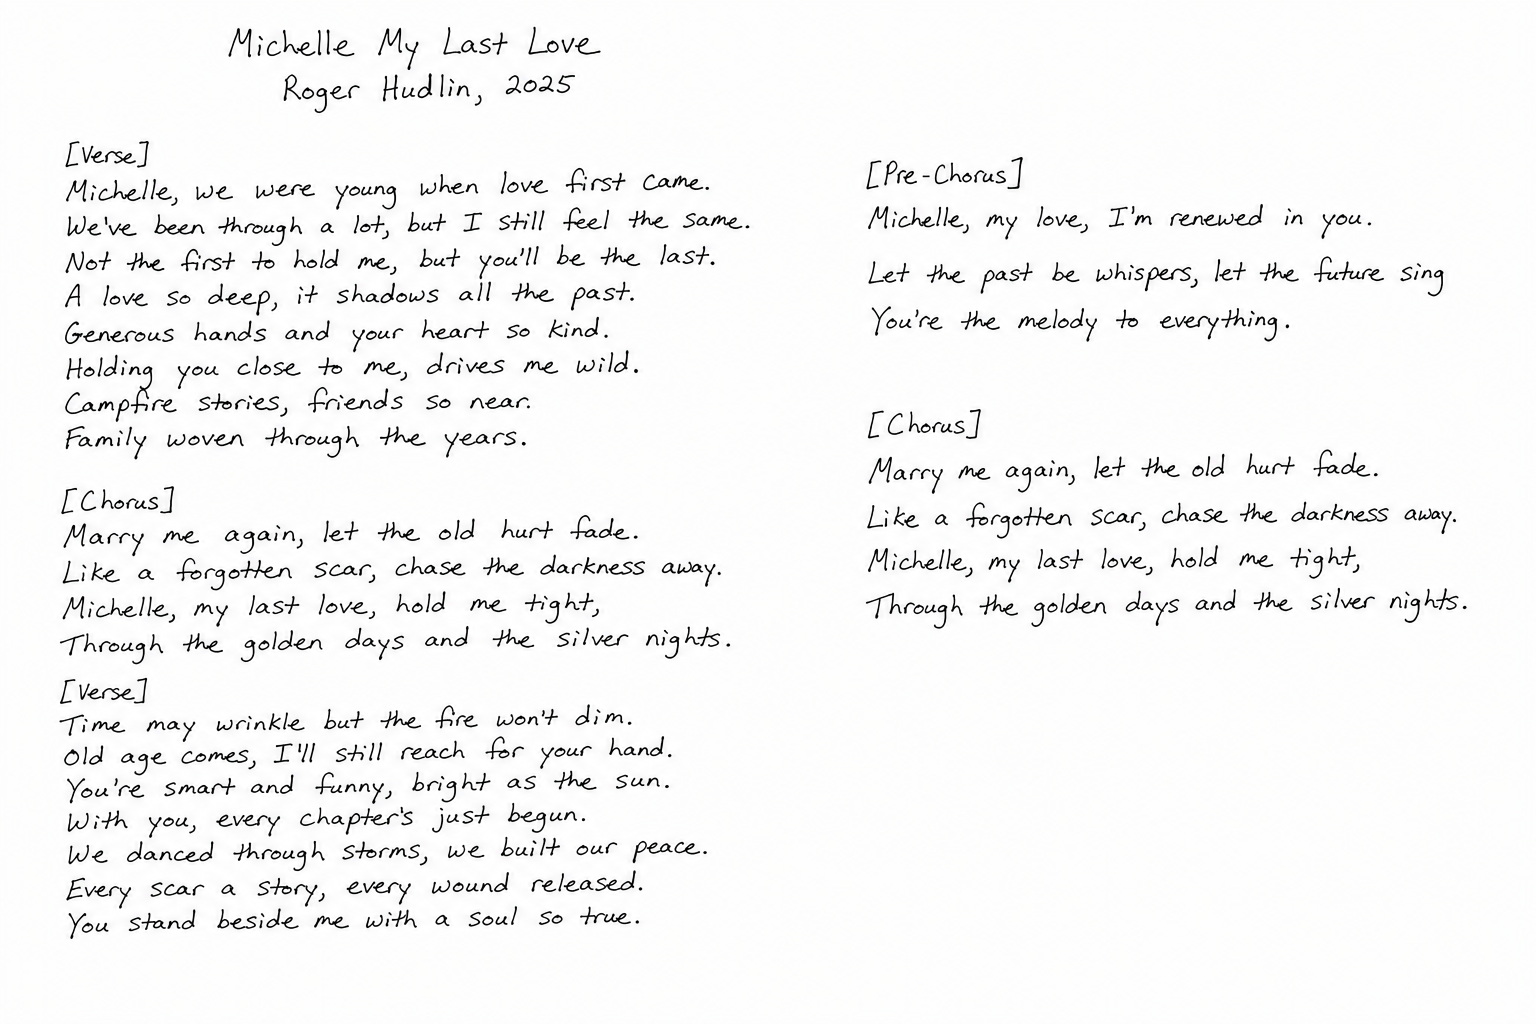 Michelle My Last Love
Roger Hudlin, 2025
[Verse]
Michelle, we were young when love first came.
We've been through a lot, but I still feel the same.
Not the first to hold me, but you'll be the last.
A love so deep, it shadows all the past.
Generous hands and your heart so kind.
Holding you close to me, drives me wild.
Campfire stories, friends so near.
Family woven through the years.
[Chorus]
Marry me again, let the old hurt fade.
Like a forgotten scar, chase the darkness away.
Michelle, my last love, hold me tight,
Through the golden days and the silver nights.
[Verse]
Time may wrinkle but the fire won't dim.
Old age comes, I'll still reach for your hand.
You're smart and funny, bright as the sun.
With you, every chapter's just begun.
We danced through storms, we built our peace.
Every scar a story, every wound released.
You stand beside me with a soul so true.
[Pre-Chorus]
Michelle, my love, I'm renewed in you.
Let the past be whispers, let the future sing
You're the melody to everything.
[Chorus]
Marry me again, let the old hurt fade.
Like a forgotten scar, chase the darkness away.
Michelle, my last love, hold me tight,
Through the golden days and the silver nights.